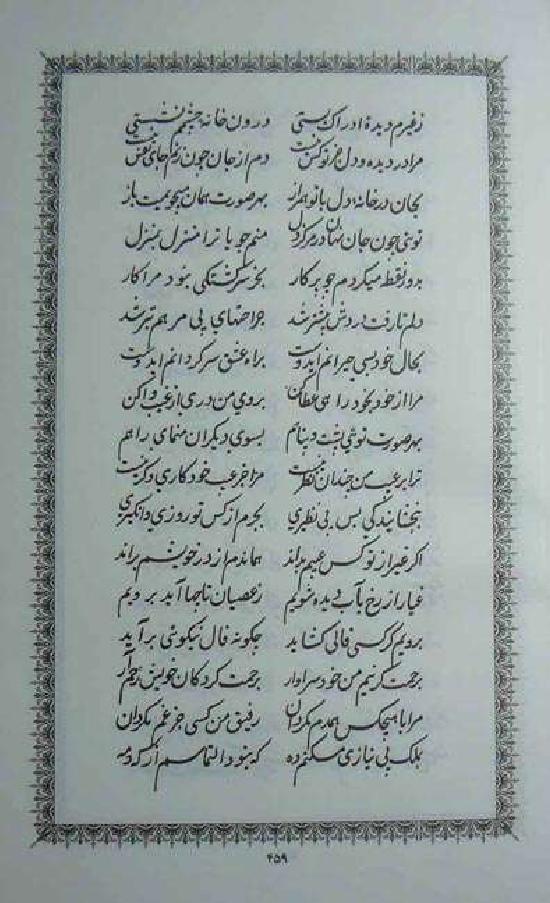 زغیرم دیدهٔ ادراک بستی درون خانهٔ چشمم نشستی
مرا در دیده و دل جز تو کس نیست دم از جان چون زنم جای نفس نیست
بجان در خانهٔ دل با تو همراز بهر صورت همان میجویمت باز
توئی چون جان نهان در مرکز دل منم جویا ترا منزل بمنزل
بدور نقطه میگردم چو پرکار بجز سرگشتگی نبود مرا کار
دلم تا رفت درونش بیشتر شد جراحتهای بی مرهم بتر شد
بحال خود بسی حیرانم ایدوست براه عشق سرگردانم ایدوست
مرا از خود بخود راهی عطا کن بروی من دری از غیب وا کن
بهر صورت توئی پشت و پناهم بسوی دیگران منمای راهم
ترا بر عیب من چندان نظر نیست مرا جز عیب خود کاری دگر نیست
ببخشایندگی بس بی نظیری بجرم ار کس تو روزی وانگیری
اگر غیر از تو کس عیبم بداند هماندم از در خویشم براند
غبار از رخ بآب دیده شویم ز عصیان تا چها آید برویم
برویم گر کسی فالی گشاید چگونه فال نیکوئی برآید
برحمت گر نیم من خود سزاوار برحمت کرد کان خویش رحم آر
مرا با هیچکس همدم مگردان رفیق من کسی جز غم مگردان
بملک بی نیازی مسکنم ده که نبود التماسم از که و مه
۴۵۹